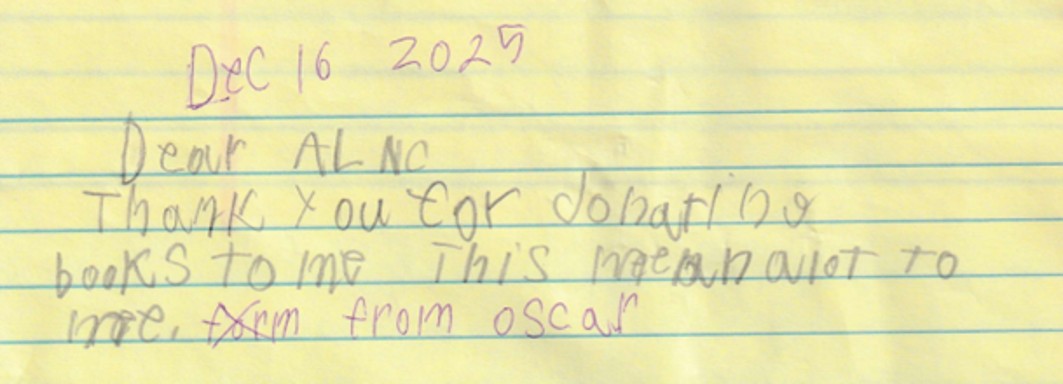 Dec 16 2025
Dear ALNC
Thank You for donating
books to me This mean alot to
me. form from oscar